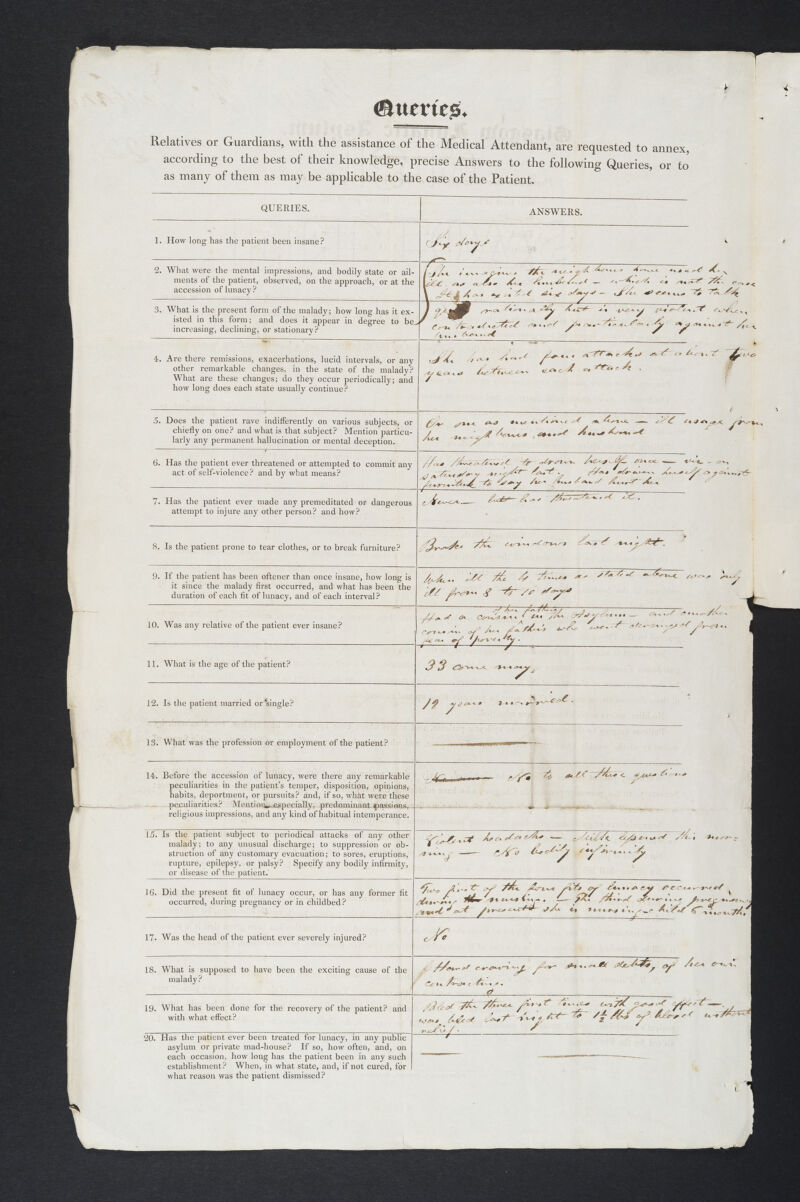 Queries.
Relatives or Guardians, with the assistance of the Medical Attendant, are requested to annex,
according to the best of their knowledge, precise Answers to the following Queries, or to
as many of them as may be applicable to the case of the Patient.
QUERIES.
ANSWERS.
1. How long has the patient been insane?
Six days
2. What were the mental impressions, and bodily state or ail-
ments of the patient, observed, on the approach, or at the
accession of lunacy?
She imagines the neighbours have used her
ill, as also her husband - which is not the case
3. What is the present form of the malady; how long has it ex-
isted in this form; and does it appear in degree to be
increasing, declining, or stationary?
It has existed six days - She seems to talk
rationally but is very violent when
contradicted and particularly against her
husband
4. Are there remissions, exacerbations, lucid intervals, or any
other remarkable changes, in the state of the malady?
What are these changes; do they occur periodically; and
how long does each state usually continue?
She has had four attacks at about two
years between each attack.
5. Does the patient rave indifferently on various subjects, or
chiefly on one? and what is that subject? Mention particu-
larly any permanent hallucination or mental deception.
On one as mentioned above - ill usage from
her neighbours and husband
6. Has the patient ever threatened or attempted to commit any
act of self-violence? and by what means?
Has threatened to drown herself once - viz - on
saturday night last. Has driven herself against
furniture to say her husband hurt her
7. Has the patient ever made any premeditated or dangerous
attempt to injure any other person? and how?
Never - but has threatened it.
8. Is the patient prone to tear clothes, or to break furniture?
Broke the windows last night.
9. If the patient has been oftener than once insane, how long is
it since the malady first occurred, and what has been the
duration of each fit of lunacy, and of each interval?
When ill the 4 times as stated above was only
ill from 8 to 10 days
10. Was any relative of the patient ever insane?
of her father
Had a cousin in the Asylum - and another
cousin of her father's who went deranged from
fear of poverty.
11. What is the age of the patient?
33 come may.
12. Is the patient married or single?
19 years married.
13. What was the profession or employment of the patient?
14. Before the accession of lunacy, were there any remarkable
peculiarities in the patient's temper, disposition, opinions,
habits, deportment, or pursuits? and, if so, what were these
peculiarities? Mention, especially, predominant passions,
religious impressions, and any kind of habitual intemperance.
No to all these questions
15. Is the patient subject to periodical attacks of any other
malady; to any unusual discharge; to suppression or ob-
struction of any customary evacuation; to sores, eruptions,
rupture, epilepsy, or palsy? Specify any bodily infirmity,
or disease of the patient.
Violent headachs - this mor=
ning - No bodily infirmity
16. Did the present fit of lunacy occur, or has any former fit
occurred, during pregnancy or in childbed?
Two first of the four fits of lunacy occurred
during nursing. - The third during pregnancy
and at present she is nursing - child 6 months
17. Was the head of the patient ever severely injured?
No
18. What is supposed to have been the exciting cause of the
malady?
Hard craving for small debts, of her own
contracting.
19. What has been done for the recovery of the patient? and
with what effect?
Bled the three first times with good effect -
was bled last night to 1½ lbs of blood without
relief.
20. Has the patient ever been treated for lunacy, in any public
asylum or private mad-house? If so, how often, and, on
each occasion, how long has the patient been in any such
establishment? When, in what state, and, if not cured, for
what reason was the patient dismissed?